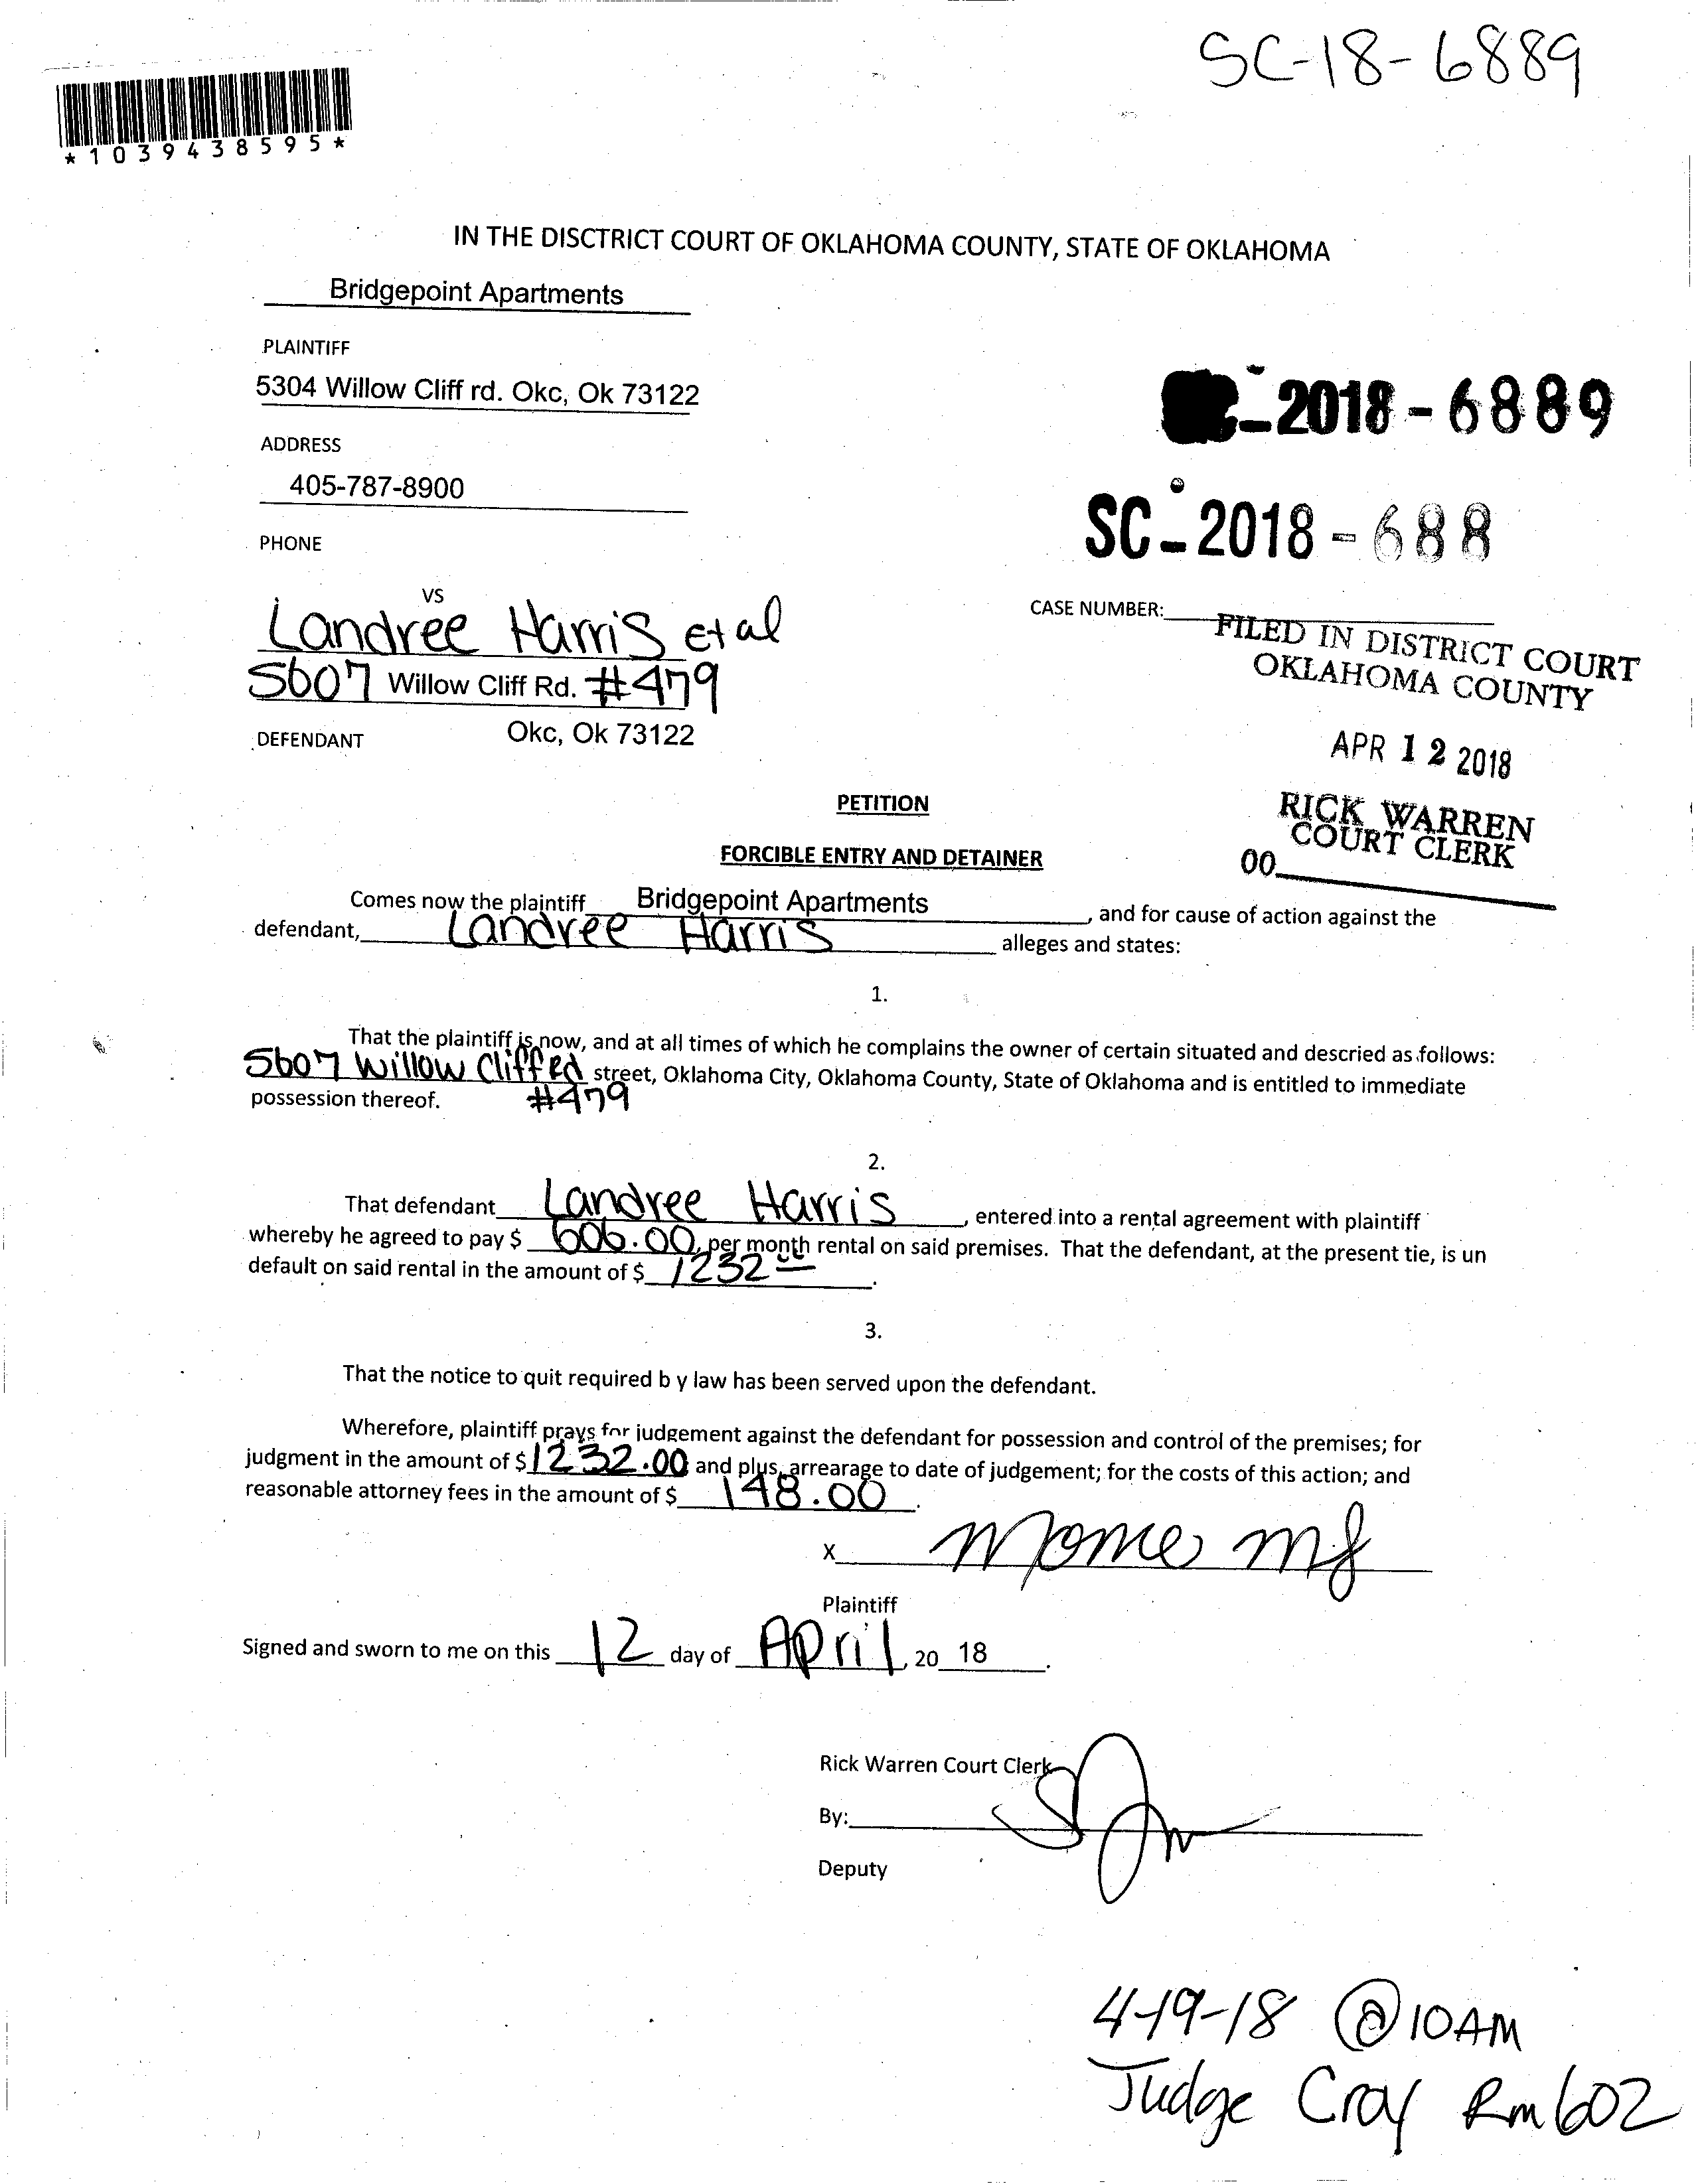 SC-18-6889
*1039438595*
IN THE DISCTRICT COURT OF OKLAHOMA COUNTY, STATE OF OKLAHOMA
Bridgepoint Apartments
PLAINTIFF
5304 Willow Cliff rd. Okc, Ok 73122
-2018-6889
ADDRESS
405-787-8900
SC-2018-688
PHONE
VS
CASE NUMBER:
Landree Harris et al
5607 Willow Cliff Rd. #479
FILED IN DISTRICT COURT
OKLAHOMA COUNTY
DEFENDANT Okc, Ok 73122
APR 12 2018
PETITION
RICK WARREN
COURT CLERK
FORCIBLE ENTRY AND DETAINER
00
Comes now the plaintiff Bridgepoint Apartments, and for cause of action against the
defendant, Landree Harris alleges and states:
1.
That the plaintiff is now, and at all times of which he complains the owner of certain situated and descried as follows:
5607 Willow Cliff Rd street, Oklahoma City, Oklahoma County, State of Oklahoma and is entitled to immediate
possession thereof. #479
2.
That defendant Landree Harris, entered into a rental agreement with plaintiff
whereby he agreed to pay $ 606.00, per month rental on said premises. That the defendant, at the present tie, is un
default on said rental in the amount of $ 1232 00.
3.
That the notice to quit required b y law has been served upon the defendant.
Wherefore, plaintiff prays for judgement against the defendant for possession and control of the premises; for
judgment in the amount of $ 1232.00 and plus, arrearage to date of judgement; for the costs of this action; and
reasonable attorney fees in the amount of $ 148.00.
X
Plaintiff
Signed and sworn to me on this 12 day of April, 20 18.
Rick Warren Court Clerk
By:
Deputy
4-19-18 @ 10AM
Judge Cray Rm 602